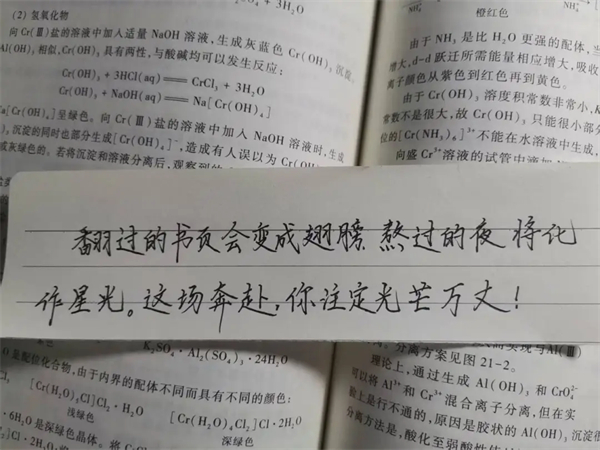 + 3H₂O
(2) 氢氧化物
向 Cr(Ⅲ)盐的溶液中加入适量 NaOH 溶液，生成灰蓝色 Cr(OH)₃ 沉淀。
Al(OH)₃ 相似，Cr(OH)₃ 具有两性，与酸碱均可以发生反应：
Cr(OH)₃ + 3HCl(aq) ══ CrCl₃ + 3H₂O
Cr(OH)₃ + NaOH(aq) ══ Na[Cr(OH)₄]
Na[Cr(OH)₄]呈绿色。向 Cr(Ⅲ)盐的溶液中加入 NaOH 溶液时，生成
沉淀的同时也部分生成[Cr(OH)₄]⁻，造成有人误以为 Cr(OH)₃
成灰绿色的。若将沉淀和溶液分离后，观察到的
NH₃
橙红色
由于 NH₃ 是比 H₂O 更强的配体，当
增大，d-d 跃迁所需能量相应增大，吸收
离子颜色从紫色到红色再到黄色。
由于 Cr(OH)₃ 溶度积常数非常小，K
常数不是很大，故 Cr(OH)₃ 只能很小部分
位的[Cr(NH₃)₆]³⁺不能在水溶液中生成，
向盛 Cr³⁺溶液的试管中滴加
翻过的书页会变成翅膀 熬过的夜将化
作星光。这场奔赴，你注定光芒万丈！
K₂SO₄·Al₂(SO₄)₃·24H₂O
是配位化合物，由于内界的配体不同而具有不同的颜色：
[Cr(H₂O)₅Cl]Cl₂·H₂O
[Cr(H₂O)₄Cl₂]Cl·2H₂O
浅绿色
深绿色
·6H₂O 是深绿色晶体。
分离方案见图 21-2。
理论上，通过生成 Al(OH)₃ 和 CrO₄²⁻
可以将 Al³⁺ 和 Cr³⁺ 混合离子分离，但在实
上是行不通的，原因是胶状的 Al(OH)₃ 沉淀很
分离方法是，酸化至弱酸性